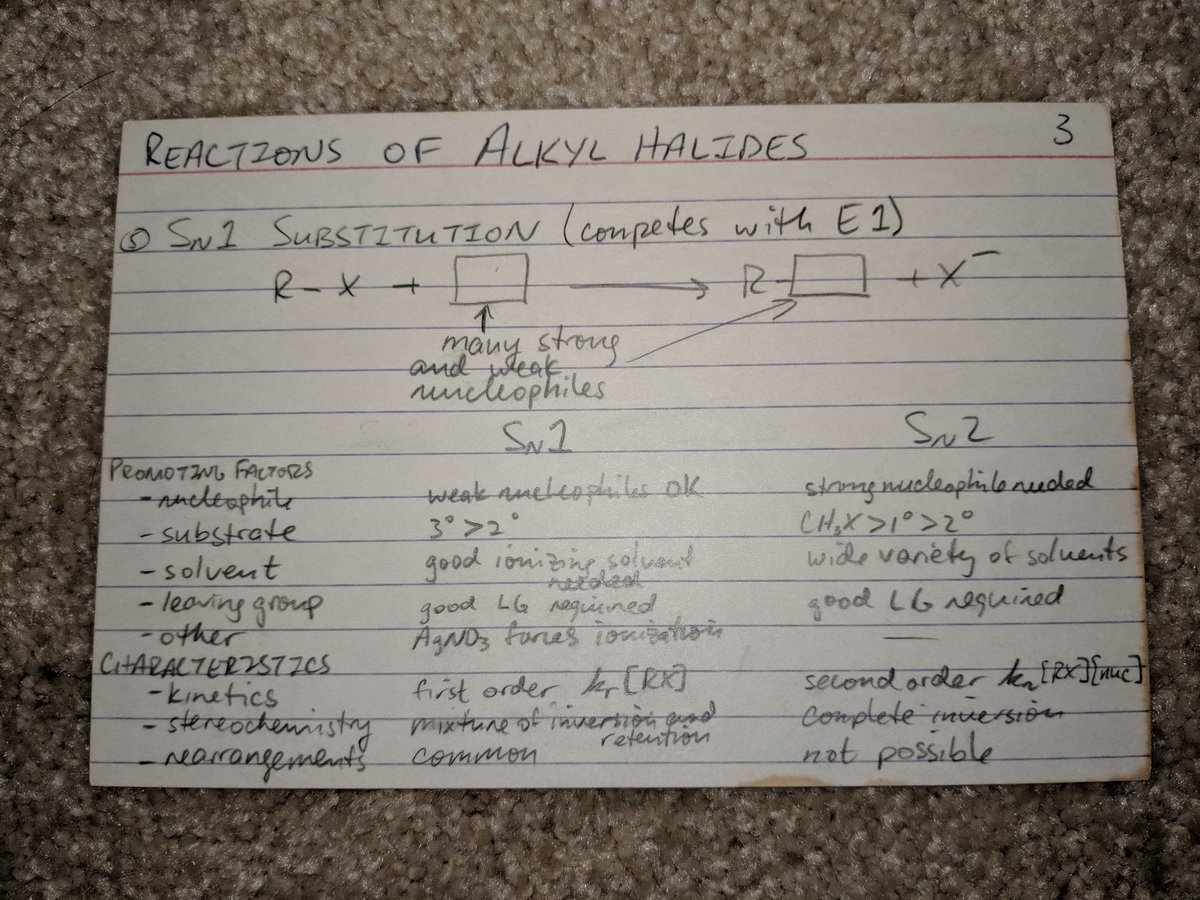 REACTIONS OF ALKYL HALIDES 3
⑤ SN1 SUBSTITUTION (competes with E1)
R-X + → R- + X⁻
many strong
and weak
nucleophiles
SN1 SN2
PROMOTING FACTORS
- nucleophile weak nucleophiles OK strong nucleophile needed
- substrate 3°>2° CH3X>1°>2°
- solvent good ionizing solvent needed wide variety of solvents
- leaving group good LG required good LG required
- other AgNO3 forces ionization —
CHARACTERISTICS
- kinetics first order kr[RX] second order [RX][nuc]
- stereochemistry mixture of inversion and retention complete inversion
- rearrangements common not possible